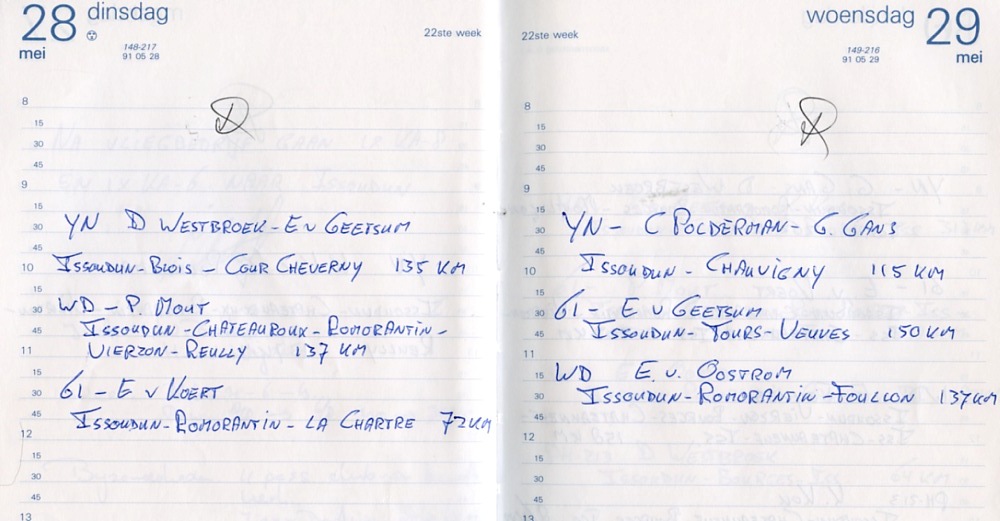 28 dinsdag
mei
148-217
91 05 28
22ste week
8
15
30
45
9
15
30 YN D WESTBROEK - E v GEETSUM
45
10 ISSOUDUN - BLOIS - COUR CHEVERNY 135 KM
15
30 WD - P. MOUT
45 ISSOUDUN - CHATEAUROUX - ROMORANTIN -
11 VIERZON - REULLY 137 KM
15
30 61 - E v KOERT
45 ISSOUDUN - ROMORANTIN - LA CHARTRE 72 KM
12
15
30
45
13
woensdag 29
mei
22ste week
149-216
91 05 29
8
15
30
45
9
15
30 YN - C POLDERMAN - G. GANS
45
10 ISSOUDUN - CHAUVIGNY 115 KM
15
30 61 - E v GEETSUM
45 ISSOUDUN - TOURS - VEUVES 150 KM
11
15 WD E. v. OOSTROM
30 ISSOUDUN - ROMORANTIN - TOULLON 137 KM
45
12
15
30
45
13